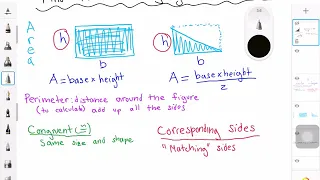 Area
h
b
A = base x height
h
b
A = base x height
2
Perimeter: distance around the figure
(to calculate) add up all the sides
Congruent (≅)
Same size and shape
Corresponding sides
"Matching" sides